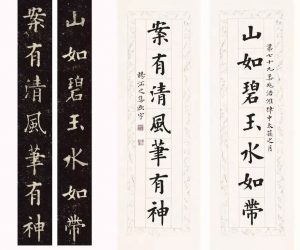 山如碧玉水如帶
案有清風筆有神
山如碧玉水如帶
案有清風筆有神